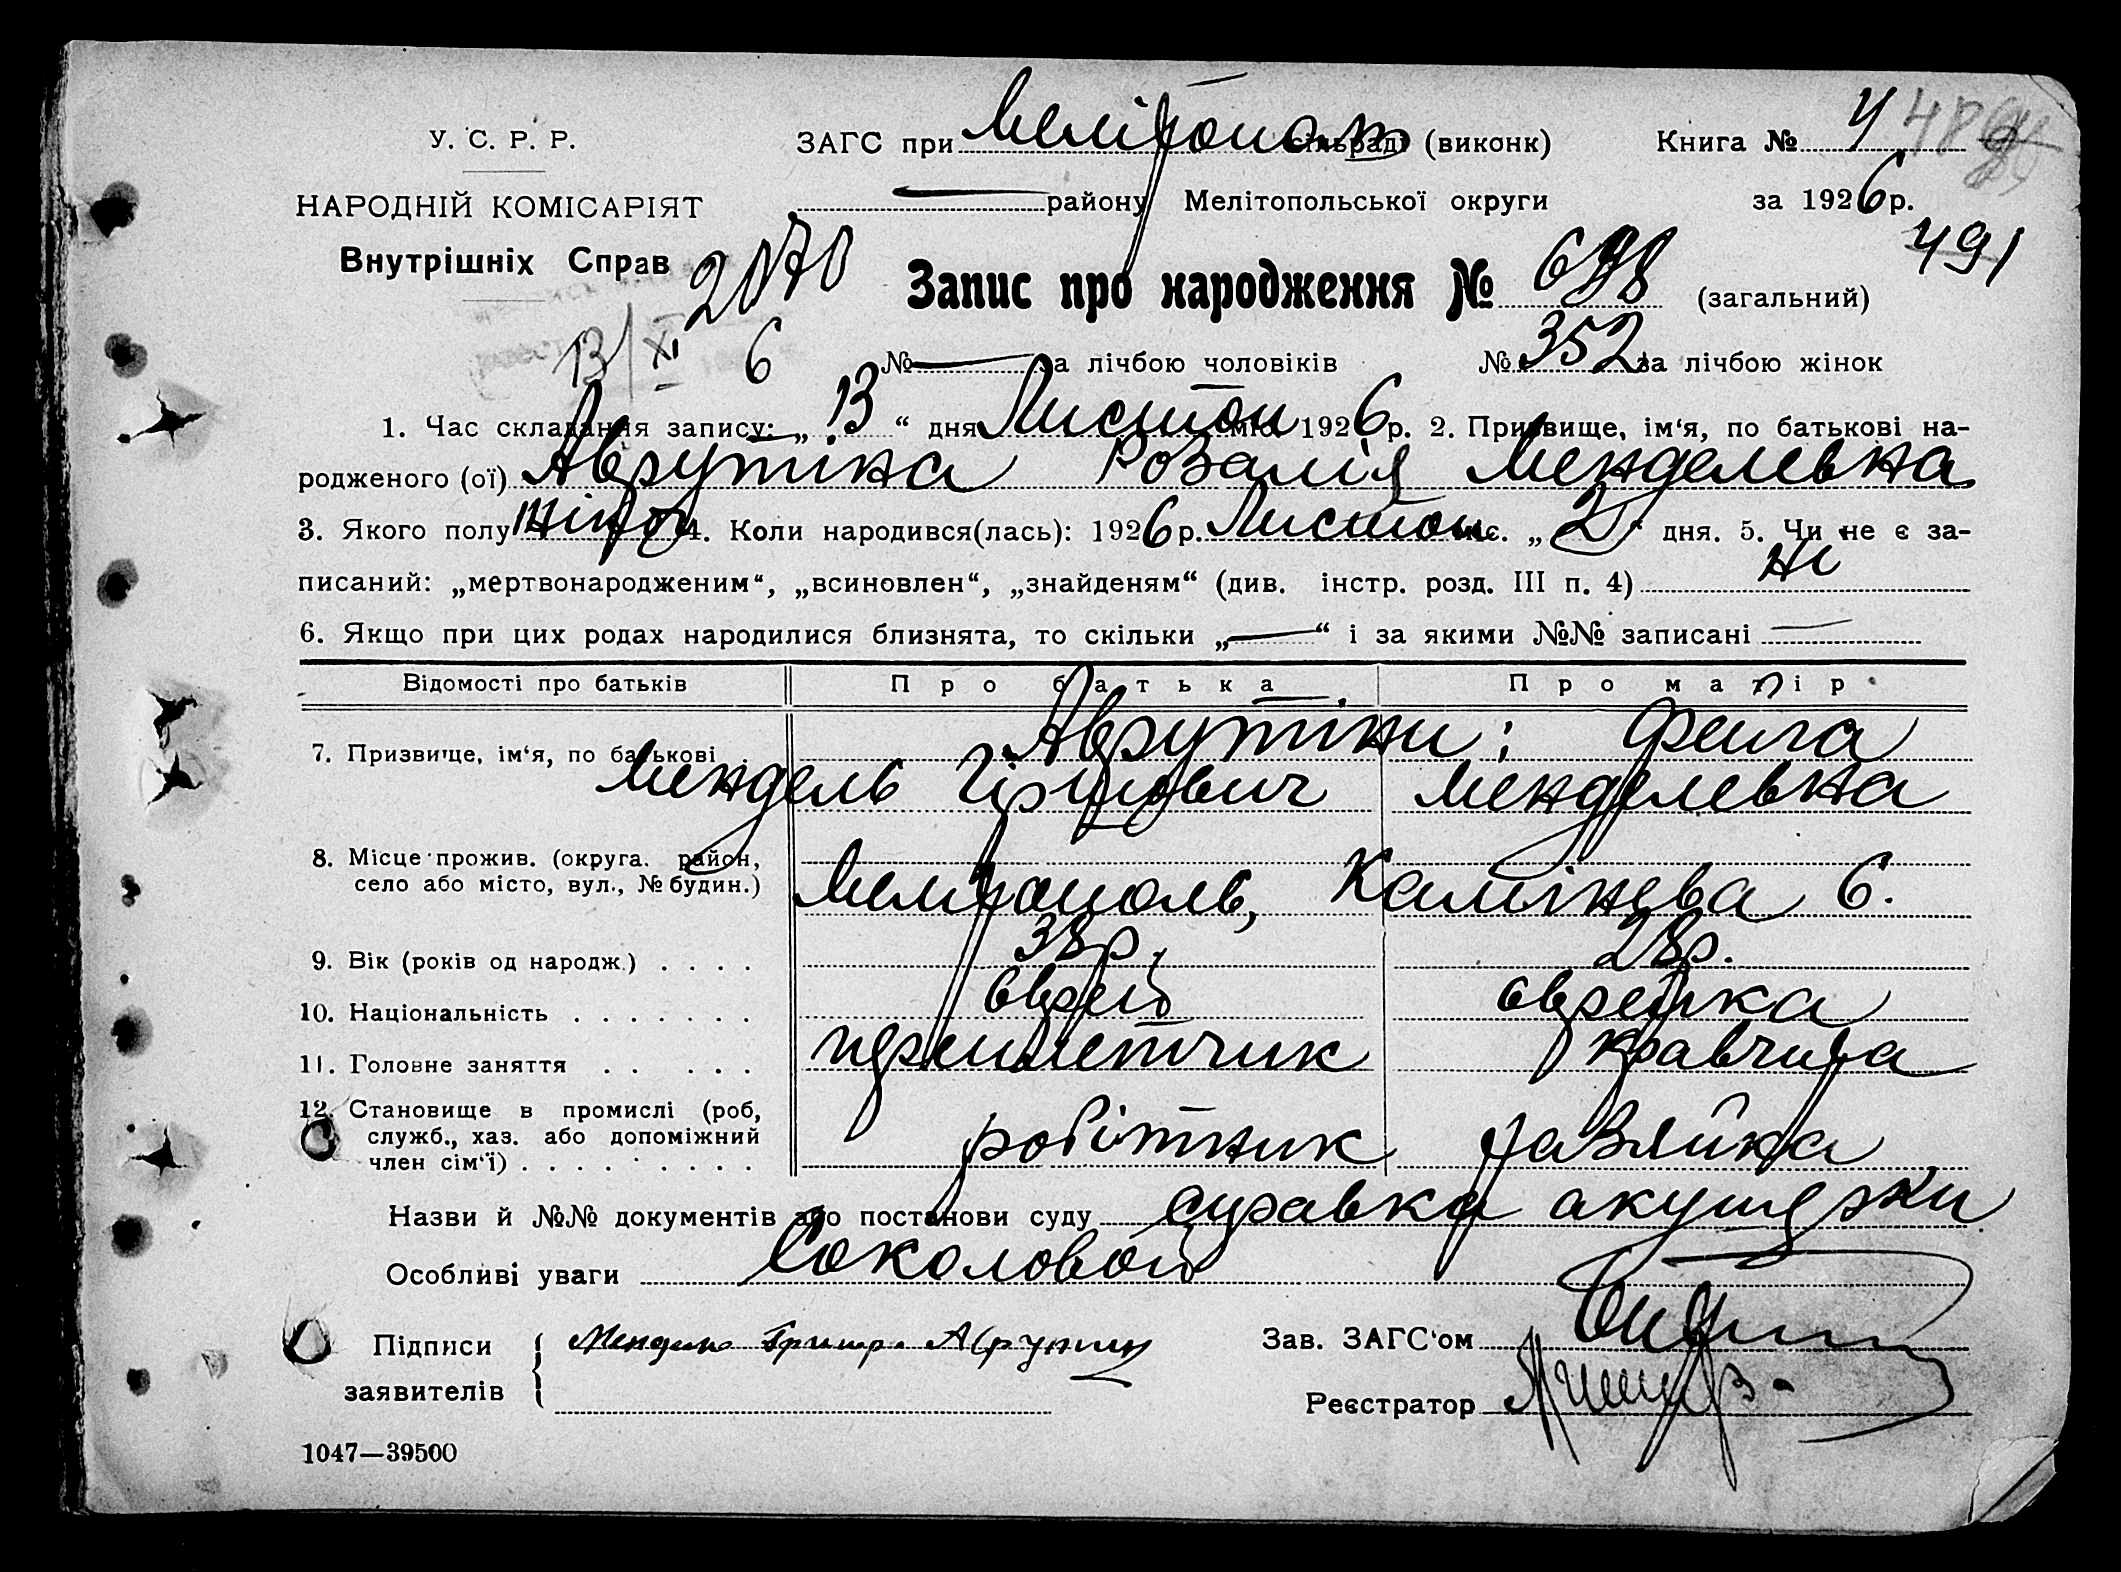 У. С. Р. Р.
НАРОДНІЙ КОМІСАРІЯТ
Внутрішніх Справ
2070
13/XI 6
ЗАГС при Мелітополь сільраді (виконк)
Книга № 4
району Мелітопольської округи
за 1926 р.
491
Запис про народження № 698 (загальний)
№ — за лічбою чоловіків № 352 за лічбою жінок
1. Час складання запису: „ 13 “ дня Листоп міс. 1926 р. 2. Призвище, ім‘я, по батькові на-
родженого (ої) Аврутіна Розалія Менделевна
3. Якого полу жіноч 4. Коли народився(лась): 1926 р. Листоп міс. „ 2 “ дня. 5. Чи не є за-
писаний: „мертвонародженим“, „всиновлен“, „знайденям“ (див. інстр. розд. III п. 4) Ні
6. Якщо при цих родах народилися близнята, то скільки „—“ і за якими №№ записані —
Відомості про батьків Про батька Про матір
7. Призвище, ім‘я, по батькові Аврутіни: Фейга
Мендель Гіршович Менделевна
8. Місце прожив. (округа, район,
село або місто, вул., № будин.) Мелітополь, Калінева 6.
9. Вік (років од народж.) . . . . 38 р. 28 р.
10. Національність . . . . . . . єврей єврейка
11. Головне заняття . . . . . переплетчик кравчиха
12. Становище в промислі (роб,
служб., хаз. або допоміжний
член сім‘ї) . . . . . . . . . робітник хазяйка
Назви й №№ документів або постанови суду справка акушерки
Особливі уваги Соколовой
Підписи
заявителів
Зав. ЗАГС‘ом
Реєстратор
1047—39500